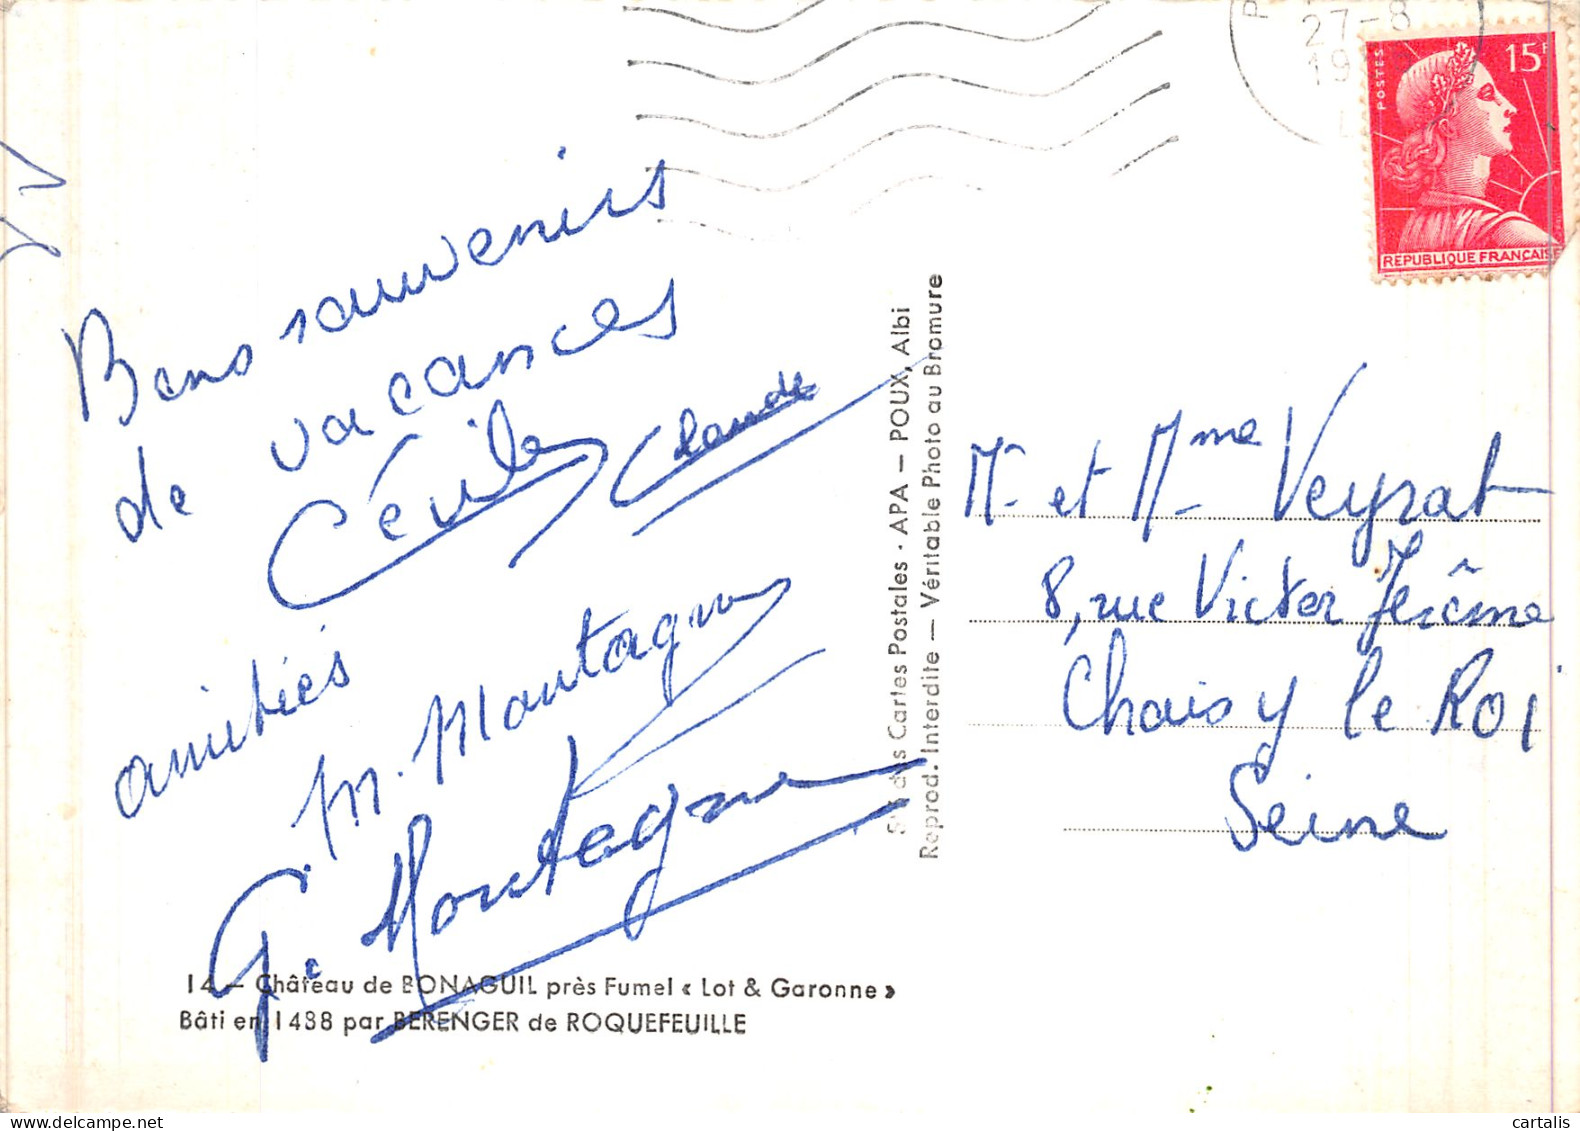 27-8
19
POSTES
15F
REPUBLIQUE FRANCAISE
Bons souvenirs
de vacances
Cécile Claude
amitiés
M. Montagne
G. Montagne
14 - Château de BONAGUIL près Fumel « Lot & Garonne »
Bâti en 1488 par BERENGER de ROQUEFEUILLE
des Cartes Postales - APA - POUX, Albi
Reprod. Interdite - Véritable Photo au Bromure
Mr et Mme Veyrat
8, rue Victor Jérôme
Choisy le Roi
Seine
cartalis